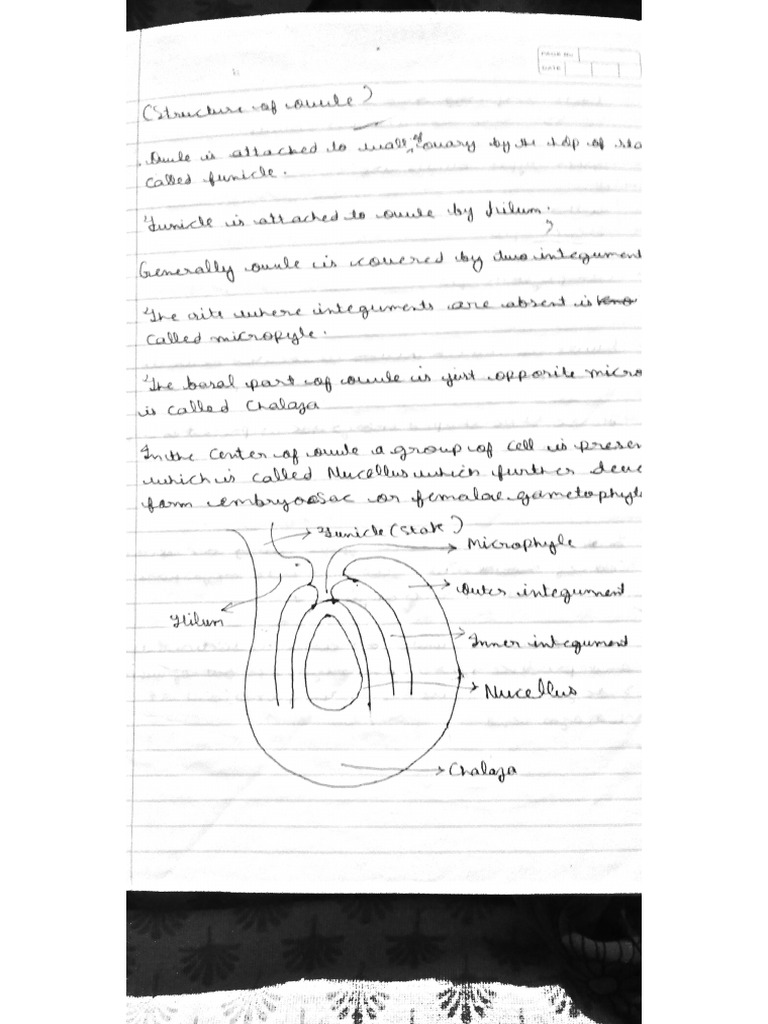 PAGE No.
DATE
(Structure of ovule)
Ovule is attached to wall of ovary by the help of sta
called funicle.
Funicle is attached to ovule by hilum.
Generally ovule is covered by two integument
The site where integuments are absent is kno
called micropyle.
The basal part of ovule is just opposite micro
is called Chalaza
In the center of ovule a group of cell is presen
which is called Nucellus which further deve
form embryosac or femalae gametophyte
Funicle (Stak)
Microphyle
Outer integument
Hilum
Inner integument
Nucellus
Chalaza